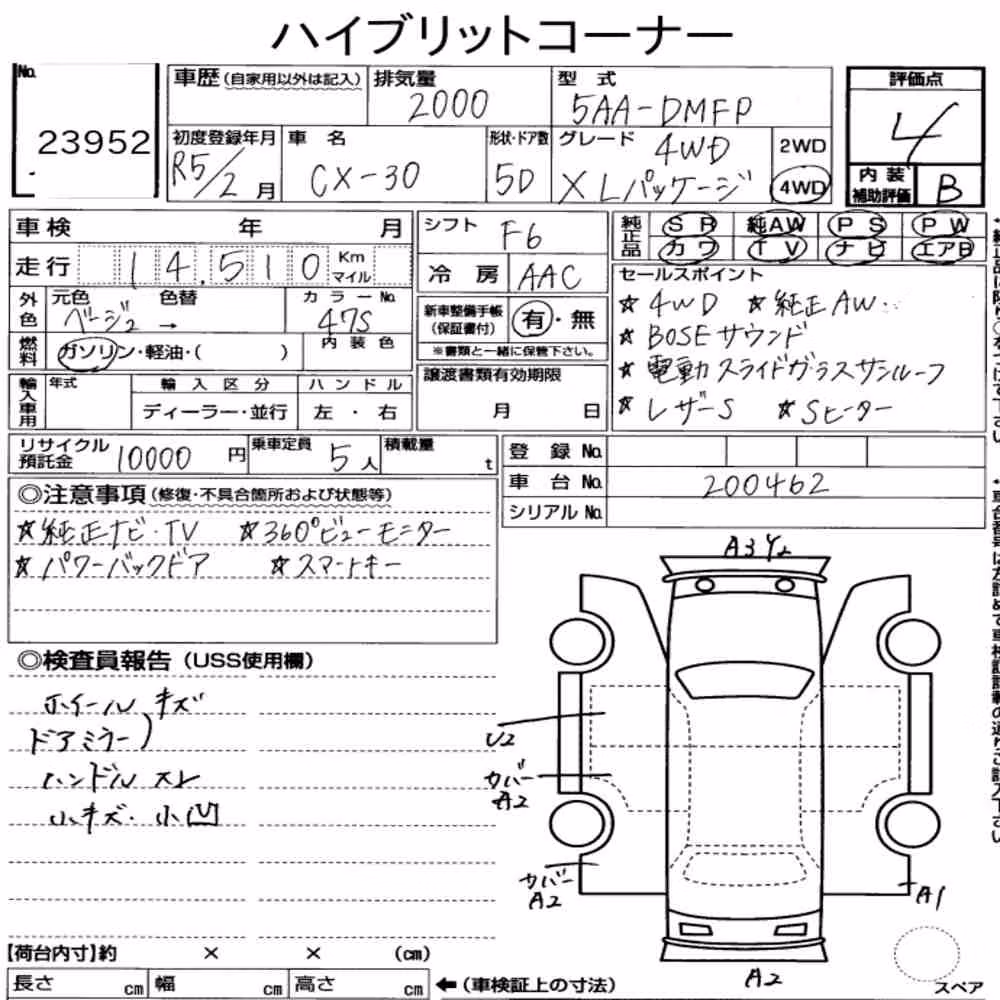 ハイブリットコーナー
No. 23952
車歴(自家用以外は記入)
排気量 2000
型式 5AA-DMFP
評価点 4
初度登録年月 R5/2月
車名 CX-30
形状・ドア数 5D
グレード 4WD
X Lパッケージ
2WD
4WD
内装補助評価 B
車検 年 月
走行 14.510 Km マイル
シフト F6
冷房 AAC
純正品 SR 純AW PS PW
カワ TV ナビ エアB
外色 元色 色替 カラーNo.
ベージュ → 47S
燃料 ガソリン・軽油・( )
内装色
新車整備手帳(保証書付) 有・無
※書類と一緒に保管下さい。
セールスポイント
☆4WD ☆純正AW
☆BOSEサウンド
☆電動スライドガラスサンルーフ
☆レザーS ☆Sヒーター
輸入車用 年式 輸入区分 ハンドル
ディーラー・並行 左・右
譲渡書類有効期限
月 日
リサイクル預託金 10000円
乗車定員 5人
積載量 t
登録No.
車台No. 200462
シリアルNo.
◎注意事項(修復・不具合箇所および状態等)
☆純正ナビ・TV ☆360°ビューモニター
☆パワーバックドア ☆スマートキー
◎検査員報告(USS使用欄)
ホイール キズ
ドアミラー)
ハンドル スレ
小キズ・小凹
A3 Y2
U2
カバー
A2
カバー
A2
A1
A2
スペア
【荷台内寸】約 × × (cm)
長さ cm 幅 cm 高さ cm ←(車検証上の寸法)